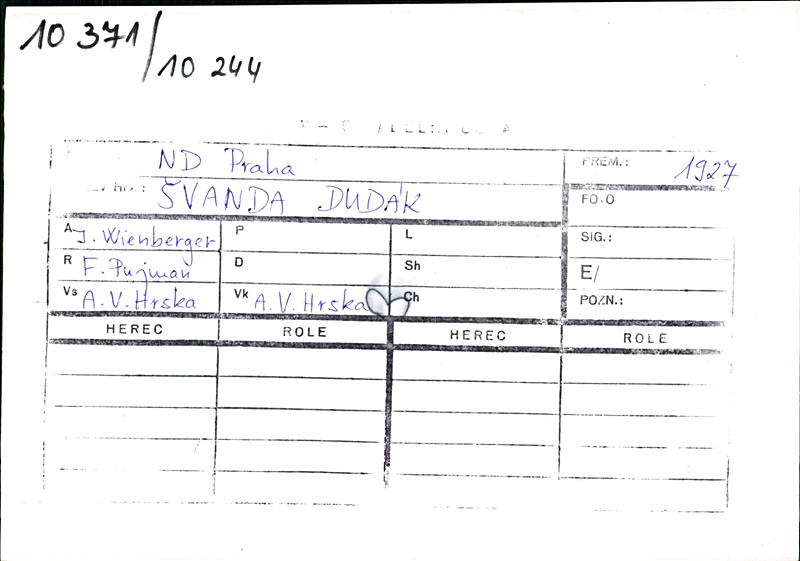 10 371/
10 244
ND Praha
PREM.: 1927
ŠVANDA DUDÁK
FOTO
A J. Wienberger P L SIG.:
R F. Pujman D Sh E/
Vs A. V. Hrska Vk A. V. Hrska Ch POZN.:
HEREC ROLE HEREC ROLE